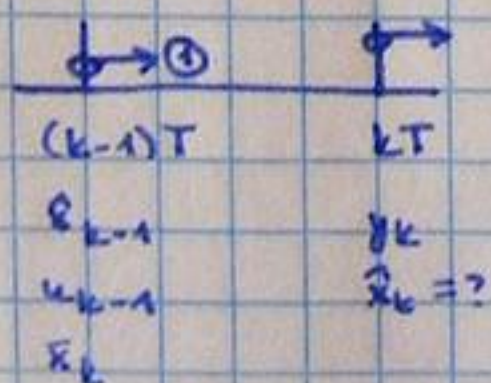 ①
(k-1)T kT
x̂_{k-1} y_k
u_{k-1} x̂_k = ?
x̄_k